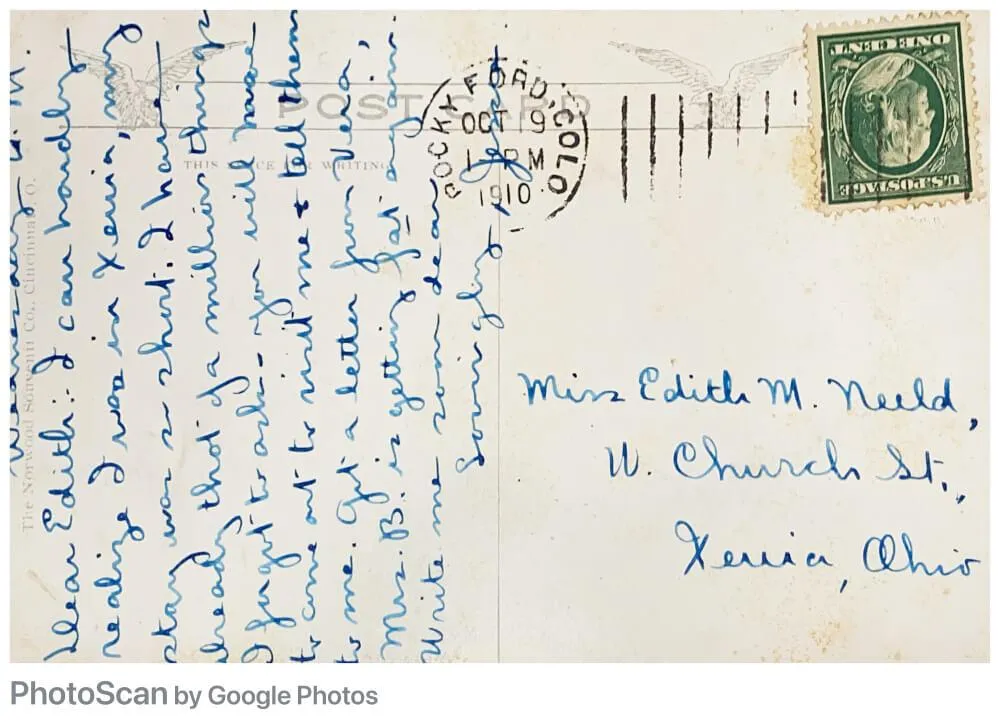 POST CARD
THIS SPACE FOR WRITING
The Norwood Souvenir Co., Cincinnati, O.
ROCKY FORD, COLO
OCT 19
1 PM
1910
ONE CENT
U.S. POSTAGE
Wednesday A.M.
Dear Edith:- I can hardly
realize I was in Xenia, my
stay was so short. I have
already thot of a million things
I forgot to ask - you will have
to come out to visit me & tell them
to me. Got a letter from Vera,
Mrs. B. is getting fat again
Write me soon dear
Lovingly,
Miss Edith M. Neeld,
W. Church St.,
Xenia, Ohio
PhotoScan by Google Photos